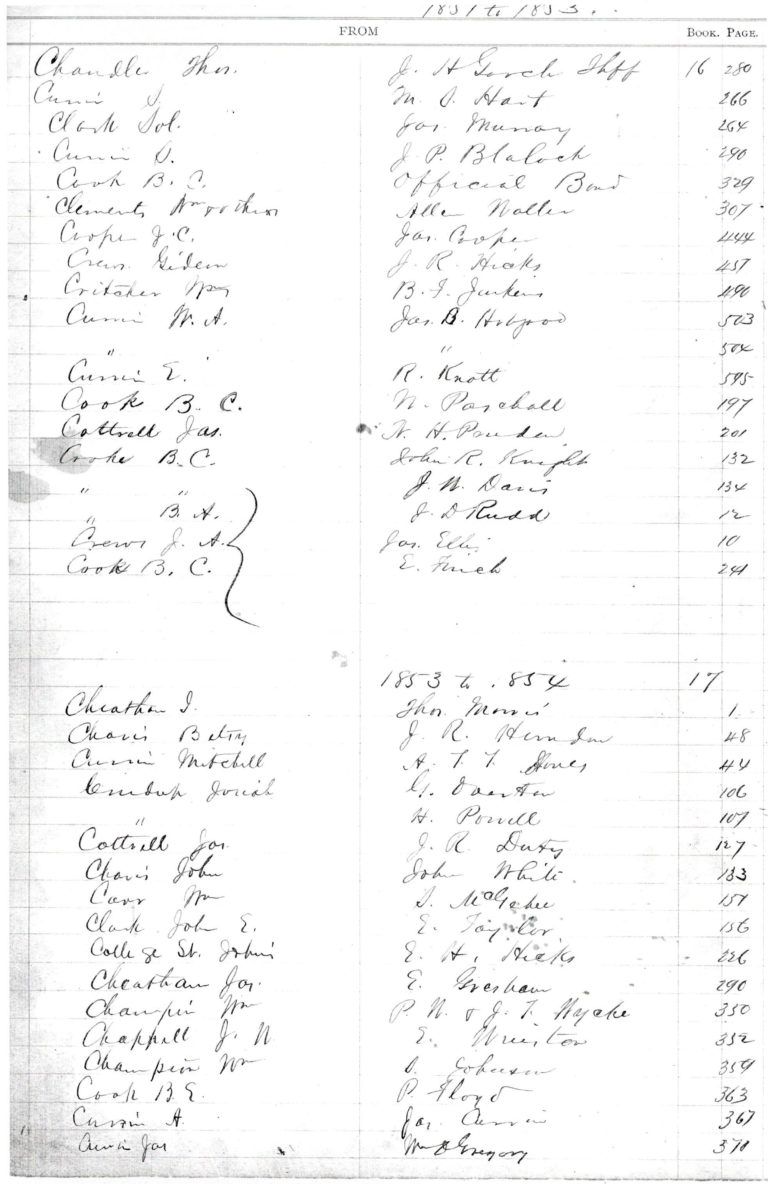 1851 to 1853.
FROM BOOK. PAGE.
Chandler Thos. J. H Gooch Shff 16 280
Currin S. M. S. Hart 266
Clark Sol. Jas. Murray 264
Currin S. J. P. Blalock 290
Cook B. C. Official Bond 329
Clements Wm & others Allen Waller 307
Cooper J. C. Jas. Cooper 444
Crews Gideon J. R. Hicks 457
Critcher B. F. Jenkins 490
Currin W. A. Jas. B. Hobgood 503
" " 504
Currin E. R. Knott 595
Cook B. C. N. Paschall 197
Cottrell Jas. N. H. Pruden 201
Cooke B. C. John R. Knight 132
" " J. W. Davis 134
" B. A. J. D Rudd 12
Crews J. A. Jas. Ellis 10
Cook B. C. E. Finch 241
1853 to .854 17
Cheatham I. Thos. Morris 1
Chavis Betsy J. R. Herndon 48
Currin Mitchell A. T. T. Jones 44
Crudup Josiah G. Overton 106
" H. Powell 107
Cottrell Jas. J. R. Duty 127
Chavis John John White. 133
Carr Wm S. McGehee 151
Clark John E. E. Taylor 156
College St. John's E. H. Hicks 226
Cheatham Jas. E. Gresham 290
Champin Wm P. W. & J. T. Wyche 350
Chappell J. N E. Winston 352
Champion Wm S. Johnson 359
Cook B E. P. Floyd 363
Currin A. Jas. Currin 367
Currin Jas Wm O Gregory 371